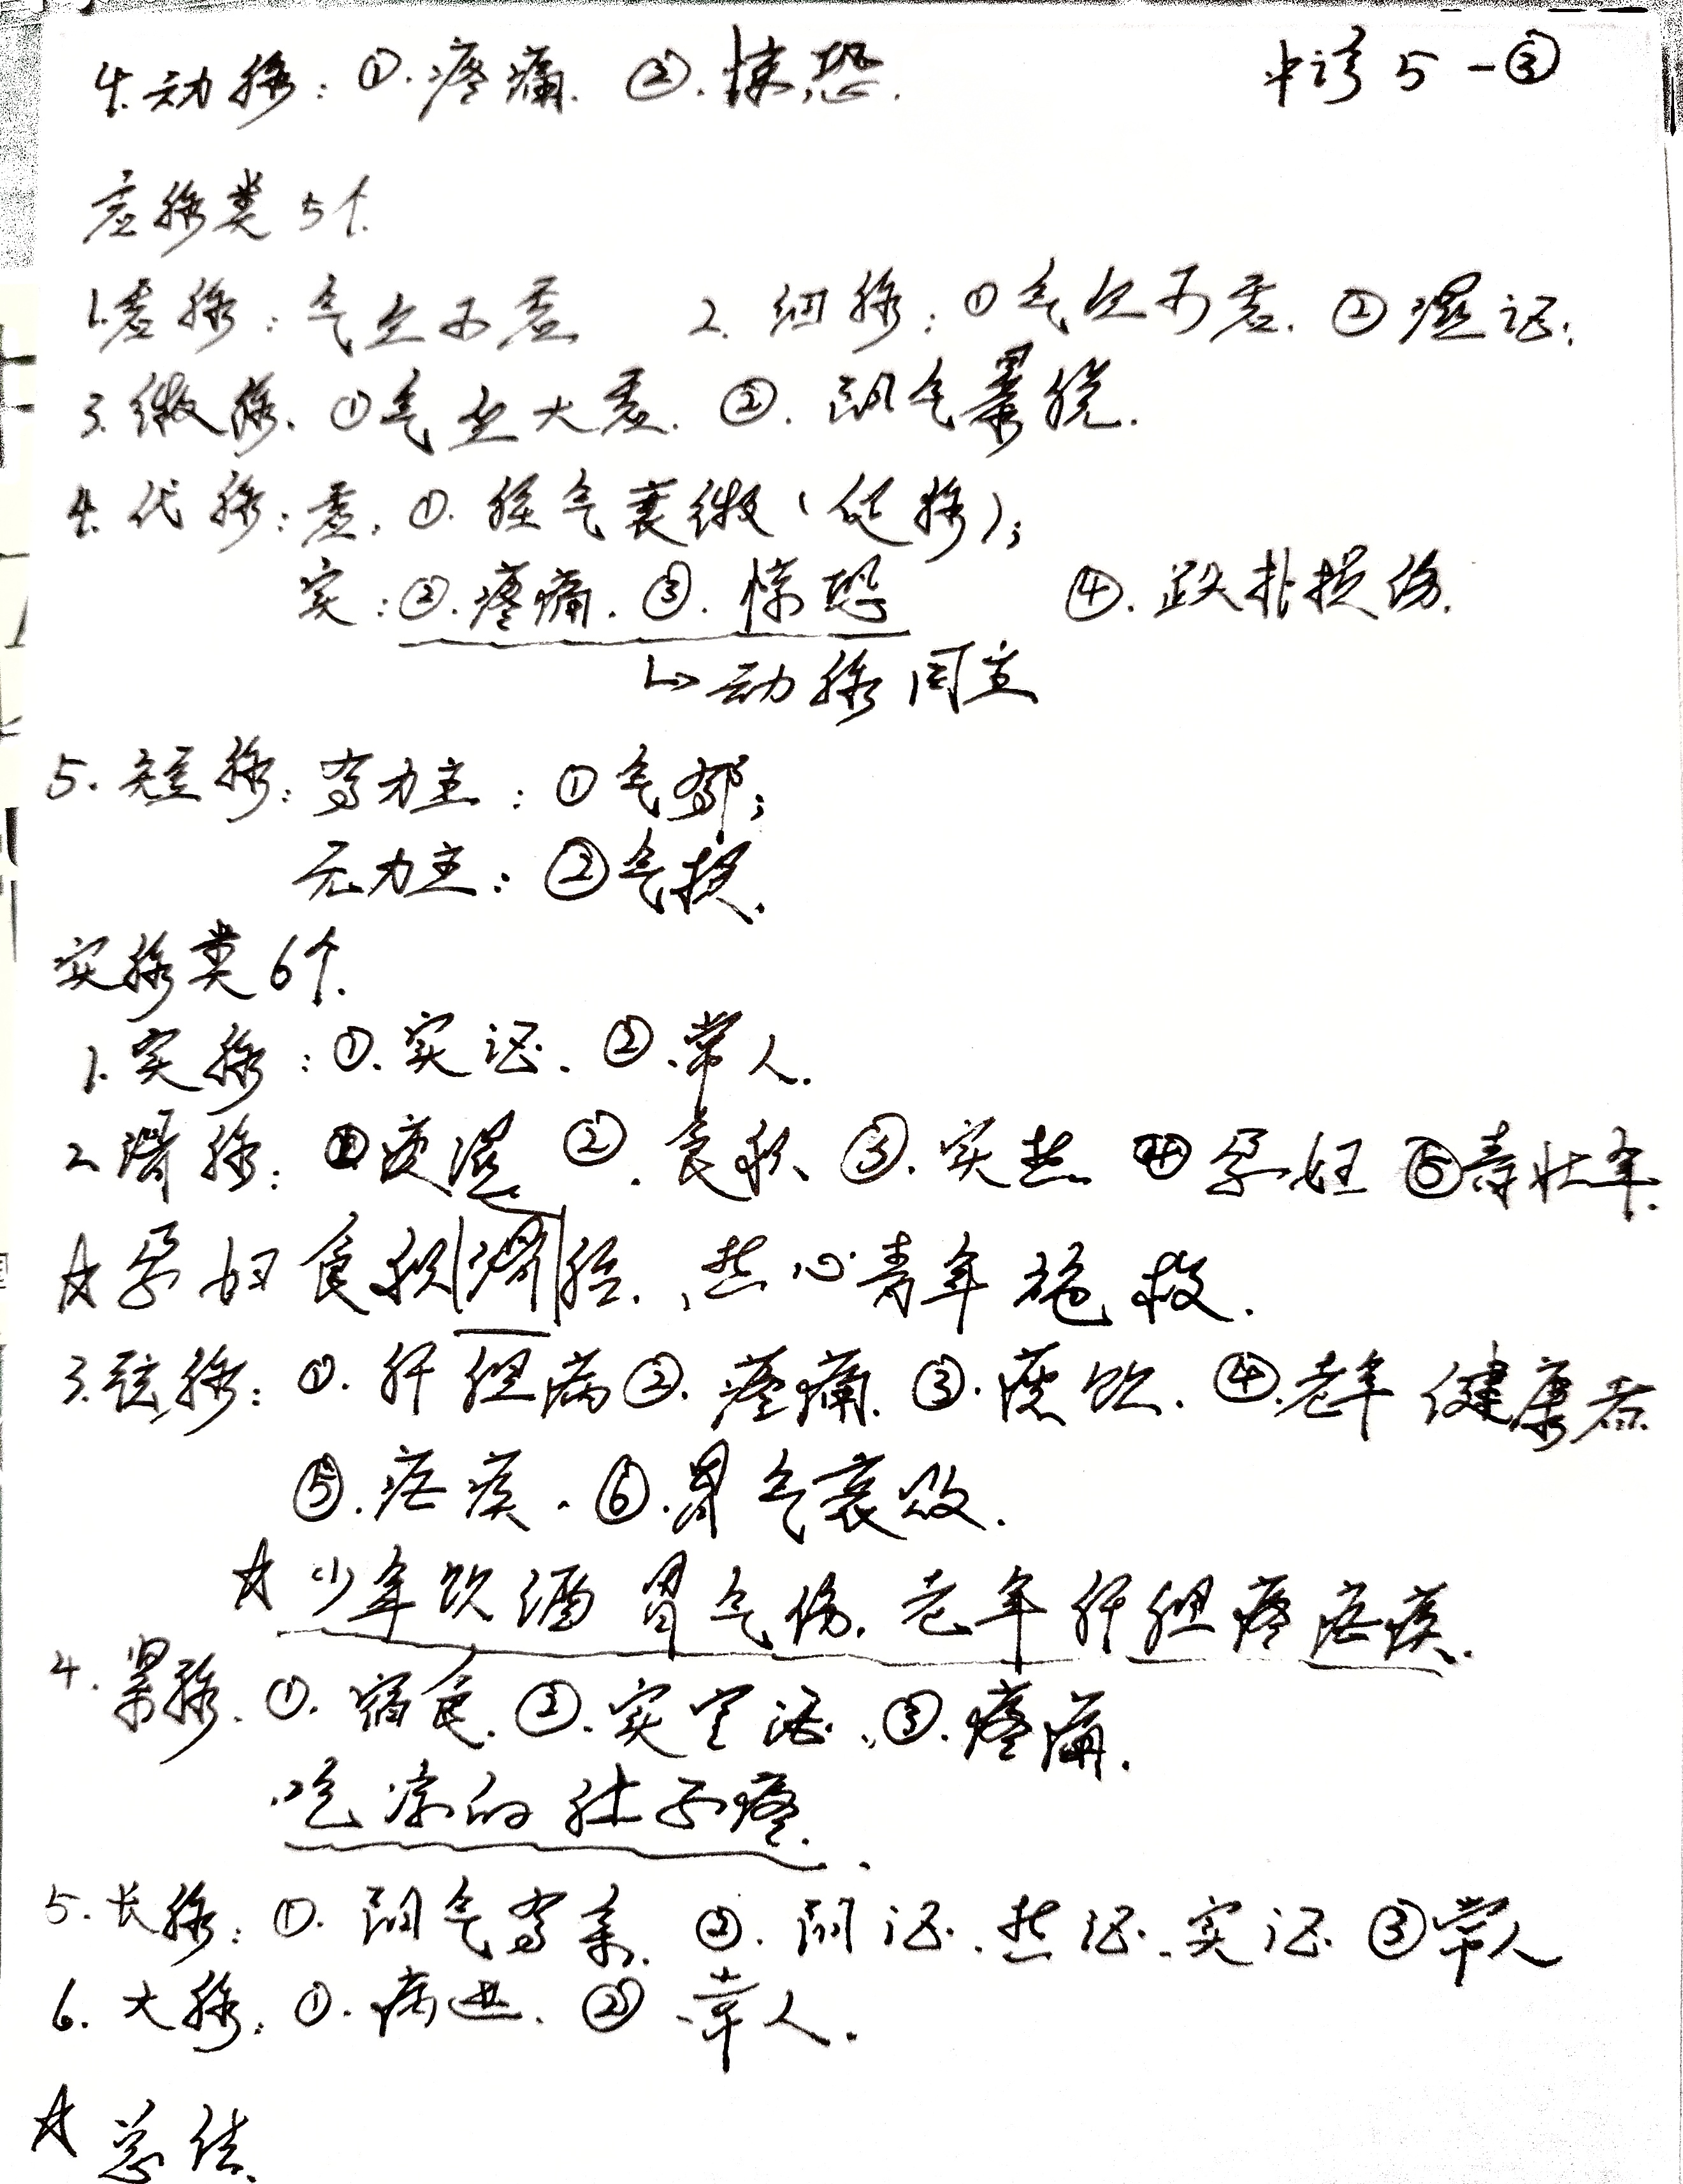 4.动脉:①.疼痛.②.惊恐. 中诊5-③
虚脉类5个.
1.虚脉:气血两虚 2.细脉:①气血两虚.②湿证.
3.微脉.①气血大虚.②.阳气暴脱.
4.代脉:虚.①.脏气衰微(促脉);
实:②.疼痛.③.惊恐 ④.跌扑损伤.
↳动脉同主
5.短脉:有力主:①气郁;
无力主:②气损.
实脉类6个.
1.实脉:①.实证.②.常人.
2.滑脉:①痰湿②.食积③.实热④孕妊⑤青壮年.
☆孕妇食积滑胎.,热心青年施救.
3.弦脉:①.肝胆病②.疼痛.③.痰饮.④.老年健康者.
⑤.疟疾.⑥.胃气衰败.
☆少年饮酒胃气伤.老年肝胆疼疟疾.
4.紧脉.①.宿食.②.实寒证.③.疼痛.
吃凉的肚子疼.
5.长脉:①.阳气有余.②.阳证.热证.实证.③常人
6.大脉:①.病进.②常人.
☆总结.